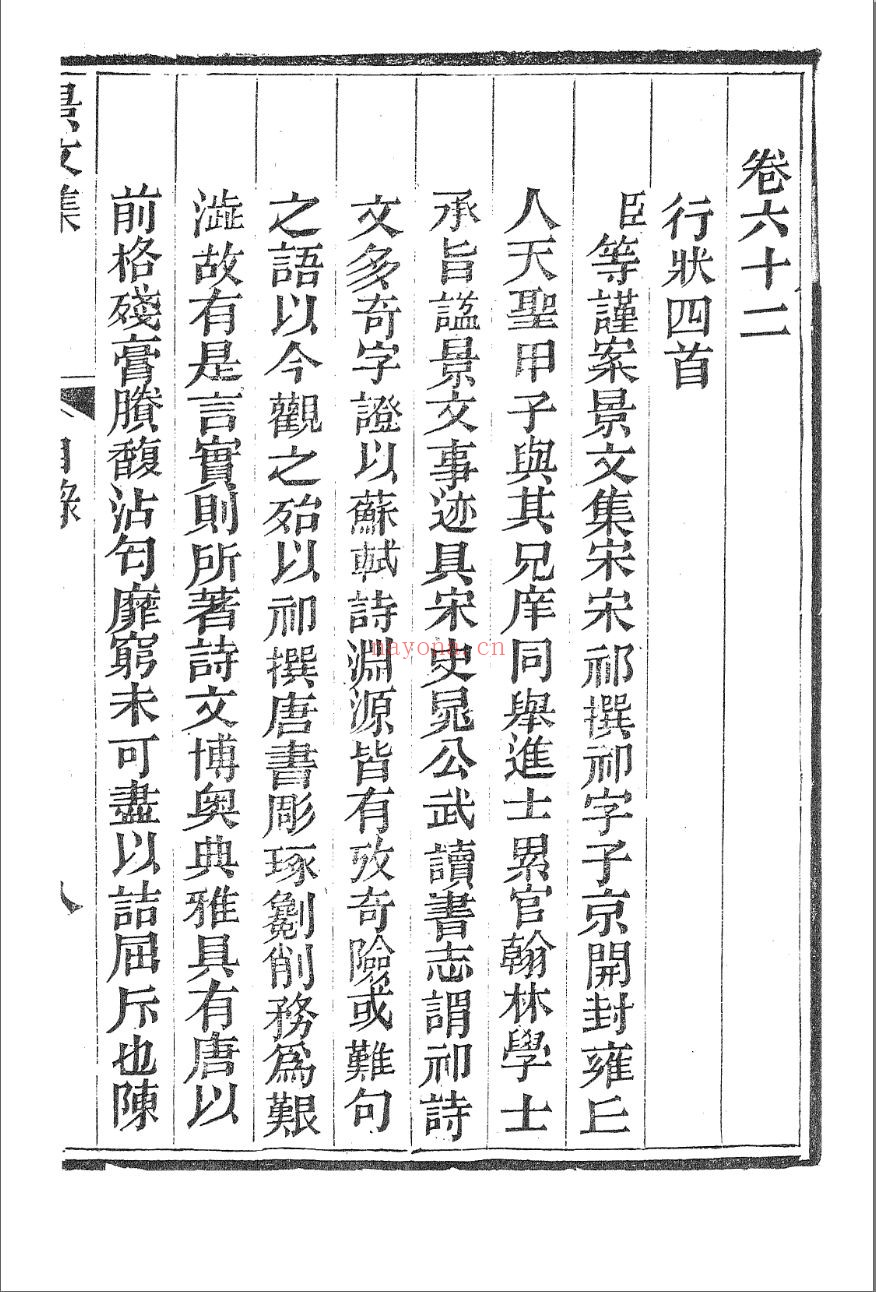 卷六十二
行狀四首
臣等謹案景文集宋宋祁撰祁字子京開封雍丘
人天聖甲子與其兄庠同舉進士累官翰林學士
承旨諡景文事迹具宋史晁公武讀書志謂祁詩
文多奇字證以蘇軾詩淵源皆有攷奇險或難句
之語以今觀之殆以祁撰唐書彫琢劖削務爲艱
澁故有是言實則所著詩文博奥典雅具有唐以
前格殘膏賸馥沾匄靡窮未可盡以詰屈斥也陳
景文集
目錄
nayona.cn